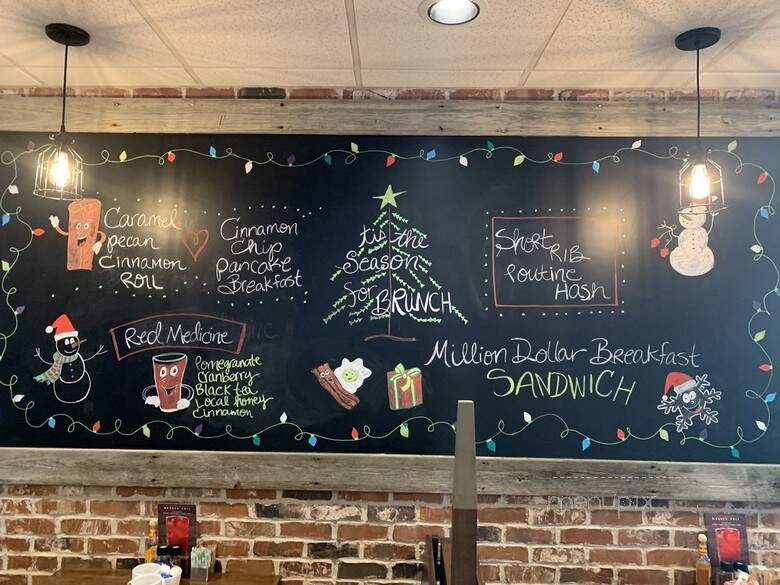 Caramel
pecan
Cinnamon
Roll
Cinnamon
Chip
Pancake
Breakfast
tis the
Season
for BRUNCH
Short
RIB
Poutine
Hash
Red Medicine
Pomegranate
Cranberry
Black tea
local honey
Cinnamon
Million Dollar Breakfast
SANDWICH
menupix